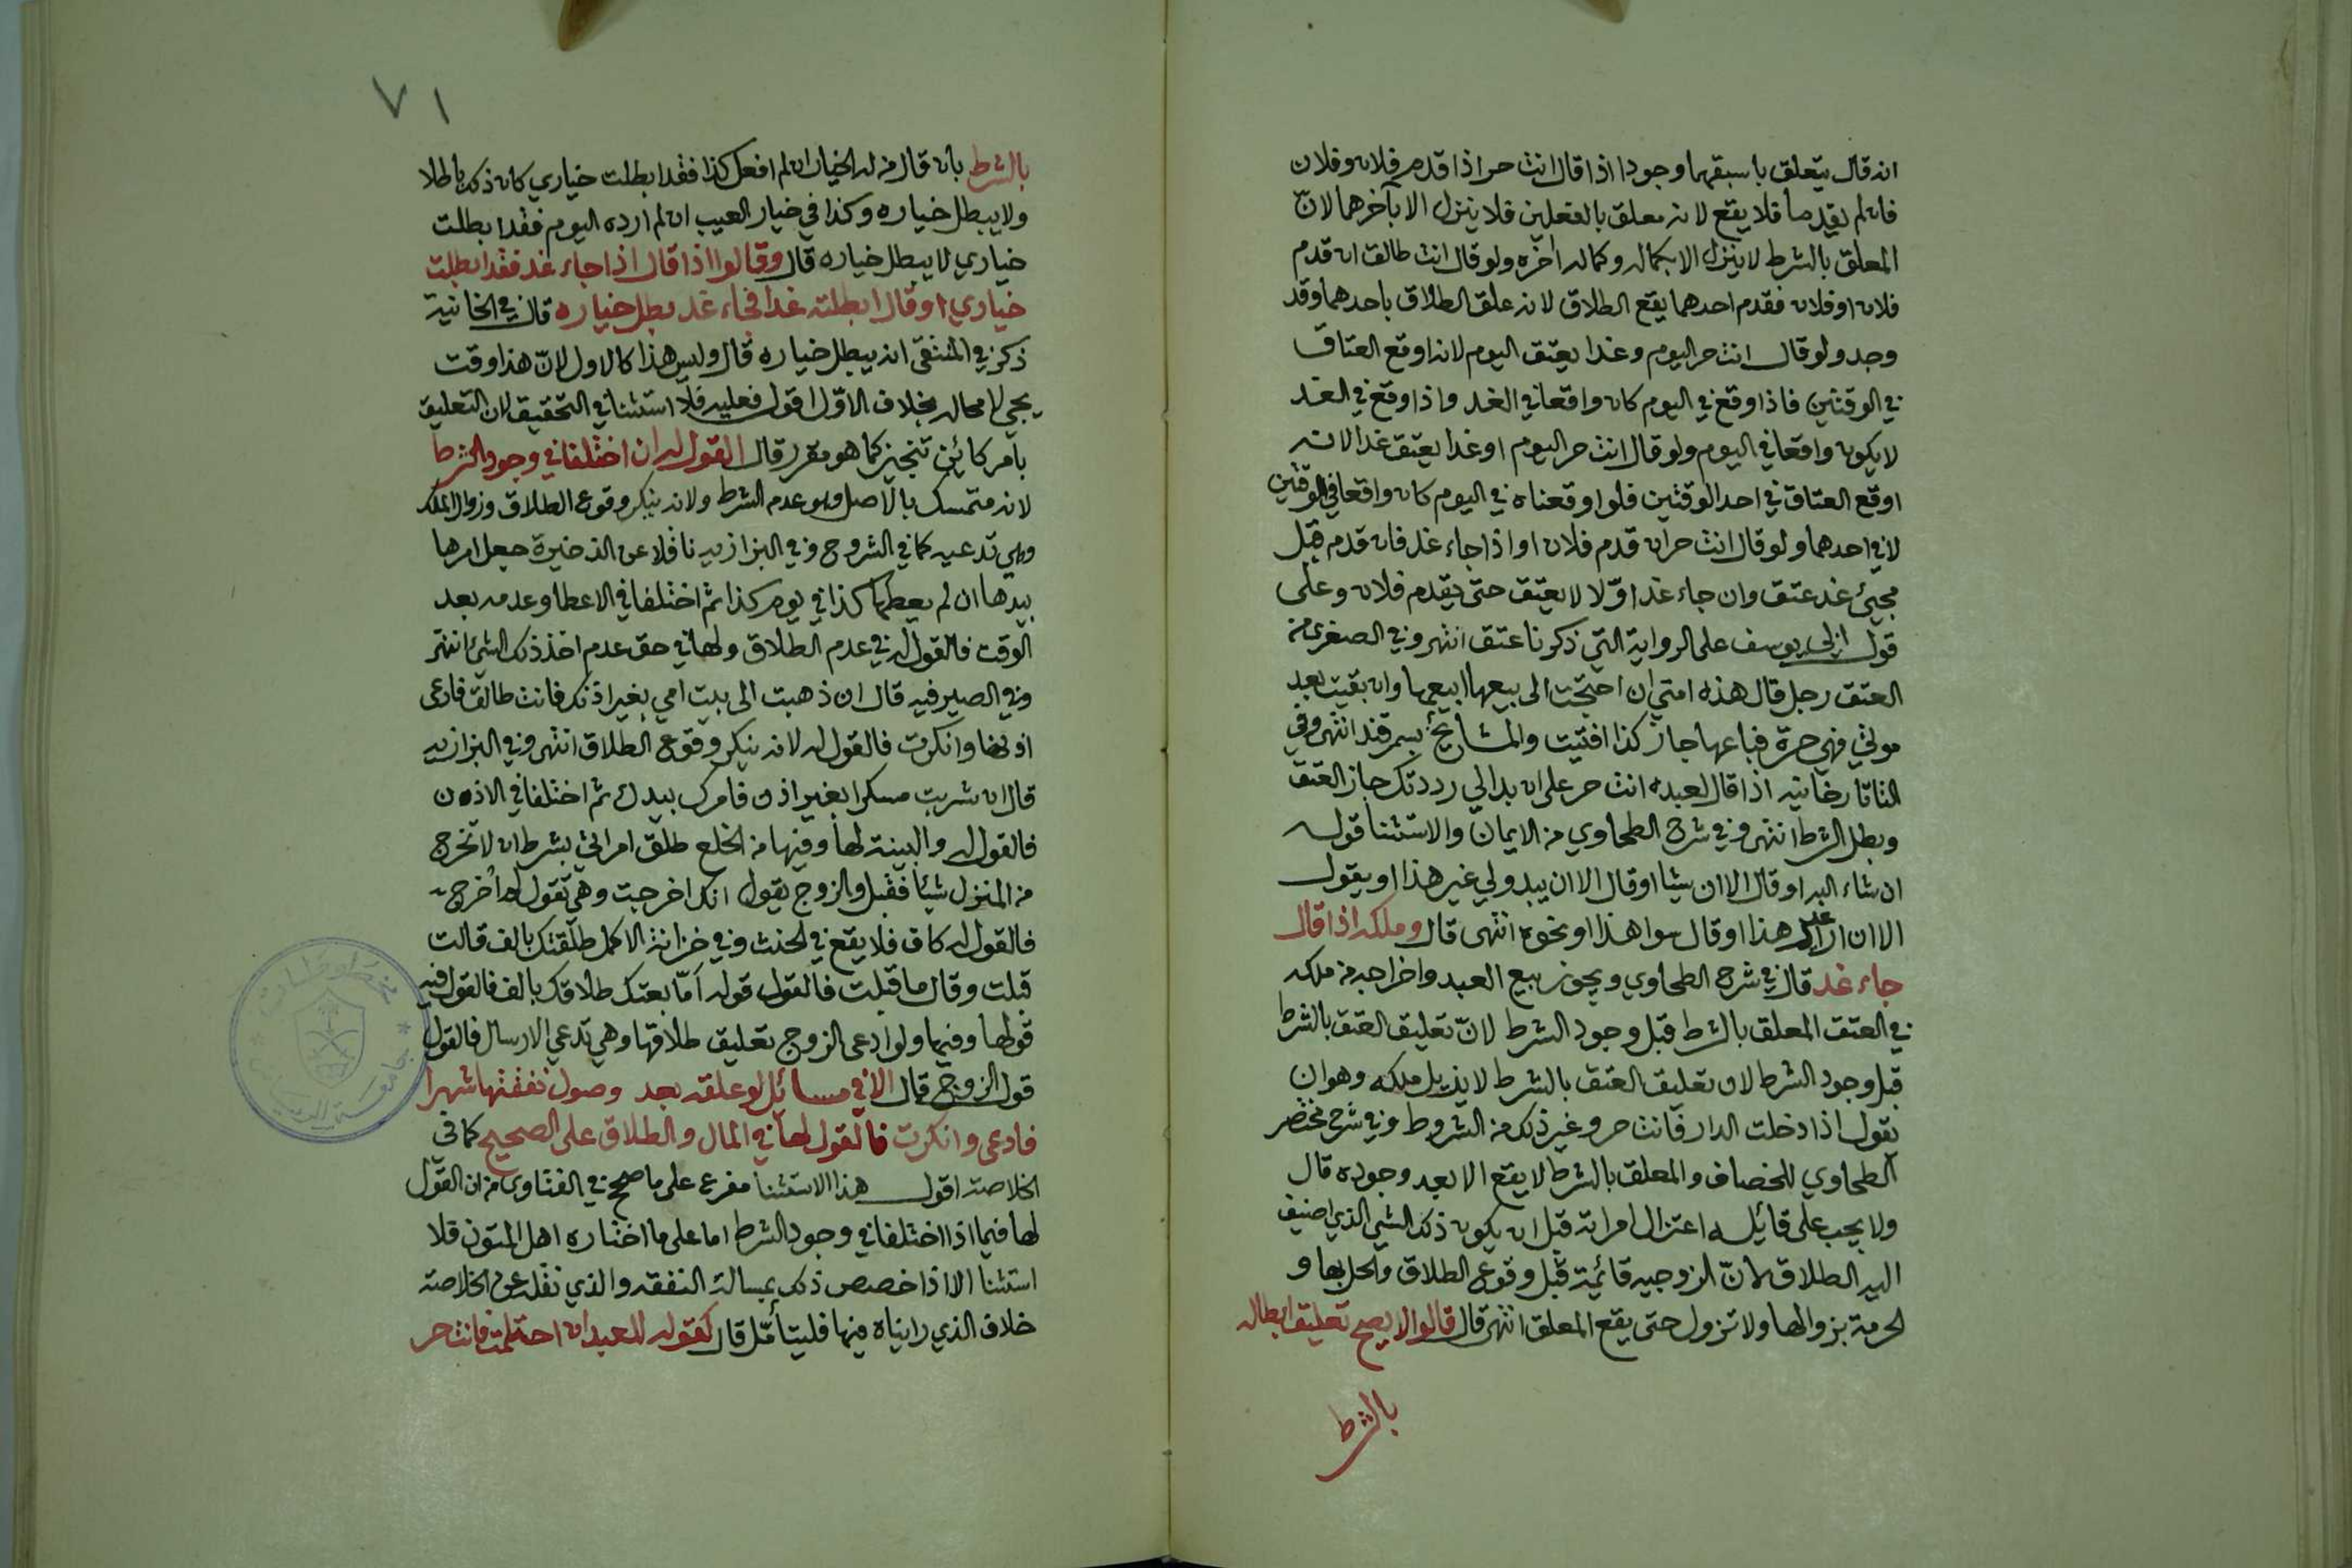 انه قال يتعلق باسبقهما وجودا اذا قال انت حر اذا قدم فلان وفلان
فان لم يقدما فلا يقع لانه معلق بالفعلين فلا ينزل الا بآخرهما لانّ
المعلق بالشرط لا ينزل الا بكماله وكماله اخره ولو قال انت طالق ان قدم
فلان او فلان فقدم احدهما يقع الطلاق لانه علق الطلاق باحدهما وقد
وجد ولو قال انت حر اليوم وغدا يعتق اليوم لانه اوقع العتاق
في الوقتين فاذا وقع في اليوم كان واقعا في الغد واذا وقع في الغد
لا يكون واقعا في اليوم ولو قال انت حر اليوم او غدا يعتق غدا لانه
اوقع العتاق في احد الوقتين فلو اوقعناه في اليوم كان واقعا في الوقتين
لا في احدهما ولو قال انت حر ان قدم فلان او اذا جاء غد فان قدم قبل
مجيئ غد عتق وان جاء غد اوّلا لا يعتق حتى يقدم فلان وعلى
قول ابي يوسف على الرواية التي ذكرنا عتق انتهى وفي الصغرى من
العتق رجل قال هذه امتي ان احتجت الى بيعها ابيعها وان بقيت بعد
موتي فهي حرة فباعها جاز كذا افتيت والمشايخ بسمرقند انتهى وفي
التاتارخانيه اذا قال لعبده انت حر على ان بدا لي رددتك جاز العتق
وبطل الشرط انتهى وفي شرح الطحاوي من الايمان والاستثنا قوله
ان شاء الله او قال الا ان يشا او قال الا ان يبدو لي غير هذا او يقول
الا ان ارى غير هذا او قال سوا هذا او نحوه انتهى قال وملكه اذا قال
جاء غد قال في شرح الطحاوي ويجوز بيع العبد واخراجه من ملكه
في العتق المعلق بالشرط قبل وجود الشرط لانّ تعليق العتق بالشرط
قبل وجود الشرط لان تعليق العتق بالشرط لا يزيل ملكه وهو ان
يقول اذا دخلت الدار فانت حر وغير ذلك من الشروط وفي شرح مختصر
الطحاوي للخصاف والمعلق بالشرط لا يقع الا بعد وجوده قال
ولا يجب على قائله اعتزال امراته قبل ان يكون ذلك الشي الذي اضيف
اليه الطلاق لانّ الزوجيه قائمة قبل وقوع الطلاق والحل بها و
الحرمة بزوالها ولا تزول حتى يقع المعلق انتهى قال قالوا لا يصح تعليق ابطاله
بالشرط
٧١
بالشرط بان قال من له الخيار ان لم افعل كذا فقد ابطلت خياري كان ذلك باطلا
ولا يبطل خياره وكذا في خيار العيب ان لم ارده اليوم فقد ابطلت
خياري لا يبطل خياره قال وقالوا اذا قال اذا جاء غد فقد ابطلت
خياري او قال ابطلته غدا فجاء غد بطل خياره قال في الخانية
ذكر في المنتقى انه يبطل خياره قال وليس هذا كالاول لانّ هذا وقت
يجي لا محاله بخلاف الاوّل اقول فعليه فلا استثنا في التحقيق لان التعليق
بامر كائن تنجيز كما هو مقرر قال القول له ان اختلفا في وجود الشرط
لانه متمسك بالاصل وهو عدم الشرط ولانه ينكر وقوع الطلاق وزوال الملك
وهي تدعيه كما في الشروح وفي البزازيه ناقلا عن الذخيرة جعل امرها
بيدها ان لم يعطها كذا في يوم كذا ثم اختلفا في الاعطا وعدمه بعد
الوقت فالقول له في عدم الطلاق ولها في حق عدم اخذ ذلك الشيئ انتهى
وفي الصيرفيه قال ان ذهبت الى بيت امي بغير اذنك فانت طالق فادعى
اذنها وانكرت فالقول له لانه ينكر وقوع الطلاق انتهى وفي البزازيه
قال ان شربت مسكرا بغير اذن فامرك بيدك ثم اختلفا في الاذن
فالقول له والبينة لها وفيها من الخلع طلق امراتي بشرط ان لا تخرج
من المنزل شيئا ففبل والزوج يقول انك اخرجت وهي تقول لم اخرج
فالقول له كاف فلا يقع في الحنث وفي خزانة الاكمل طلقتك بالف قالت
قبلت وقال ما قبلت فالقول قوله امّا بعتك طلاقك بالف فالقول فيه
قولها وفيها ولو ادعى الزوج تعليق طلاقها وهي تدعي الارسال فالقول
قول الزوج قال الا في مسائل لو علقه بعد وصول نفقتها شهرا
فادعى وانكرت فالقول لها في المال والطلاق على الصحيح كما في
الخلاصة اقول هذا الاستثنا مفرع على ما صحح في الفتاوى من ان القول
لها فيما اذا اختلفا في وجود الشرط اما على ما اختاره اهل المتون فلا
استثنا الا اذا خصص ذلك بمسالة النفقه والذي نقله عن الخلاصة
خلاف الذي رايناه فيها فليتأمّل قال كقوله للعبد ان احتلمت فانت حر